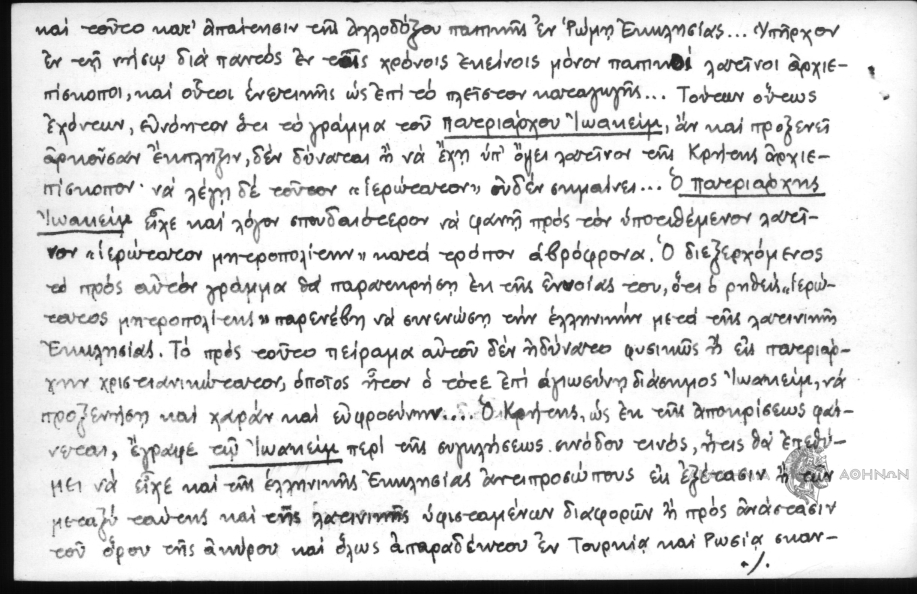 καὶ τοῦτο κατ' ἀπαίτησιν τῆς ἀλλοδόξου παπικῆς ἐν Ῥώμῃ Ἐκκλησίας... Ὑπῆρχον
ἐν τῇ νήσῳ διὰ παντὸς ἐν τοῖς χρόνοις ἐκείνοις μόνον παπικοὶ λατῖνοι ἀρχιε-
πίσκοποι, καὶ οὗτοι ἑνετικῆς ὡς ἐπὶ τὸ πλεῖστον καταγωγῆς... Τούτων οὕτως
ἐχόντων, εὐνόητον ὅτι τὸ γράμμα τοῦ πατριάρχου Ἰωακείμ, ἂν καὶ προξενεῖ
ἀρκοῦσαν ἔκπληξιν, δὲν δύναται ἢ νὰ ἔχῃ ὑπ' ὄψει λατῖνον τῆς Κρήτης ἀρχιε-
πίσκοπον· νὰ λέγῃ δὲ τοῦτον «ἱερώτατον» οὐδὲν σημαίνει... Ὁ πατριάρχης
Ἰωακεὶμ εἶχε καὶ λόγον σπουδαιότερον νὰ φανῇ πρὸς τὸν ὑποτιθέμενον λατῖ-
νον «ἱερώτατον μητροπολίτην» κατὰ τρόπον ἁβρόφρονα. Ὁ διεξερχόμενος
τὸ πρὸς αὐτὸν γράμμα θὰ παρατηρήσῃ ἐκ τῆς ἐννοίας του, ὅτι ὁ ρηθεὶς «ἱερώ-
τατος μητροπολίτης» παρενέβη νὰ συνενώσῃ τὴν ἑλληνικὴν μετὰ τῆς λατινικῆς
Ἐκκλησίας. Τὸ πρὸς τοῦτο πείραμα αὐτοῦ δὲν ἠδύνατο φυσικῶς ἢ εἰς πατριάρ-
χην χριστιανικώτατον, ὁποῖος ἦτον ὁ τότε ἐπὶ ἁγιωσύνῃ διάσημος Ἰωακείμ, νὰ
προξενήσῃ καὶ χαρὰν καὶ εὐφροσύνην.... Ὁ Κρήτης, ὡς ἐκ τῆς ἀποκρίσεως φαί-
νεται, ἔγραψε τῷ Ἰωακεὶμ περὶ τῆς συγκλήσεως συνόδου τινός, ἥτις θὰ ἐπεθύ-
μει νὰ εἶχε καὶ τῆς ἑλληνικῆς Ἐκκλησίας ἀντιπροσώπους εἰς ἐξέτασιν ἢ τῶν
μεταξὺ ταύτης καὶ τῆς λατινικῆς ὑφισταμένων διαφορῶν ἢ πρὸς ἀνάστασιν
τοῦ ὅρου τῆς ἀκύρου καὶ ὅλως ἀπαραδέκτου ἐν Τουρκίᾳ καὶ Ρωσίᾳ σκαν-
./.
ΑΘΗΝΩΝ